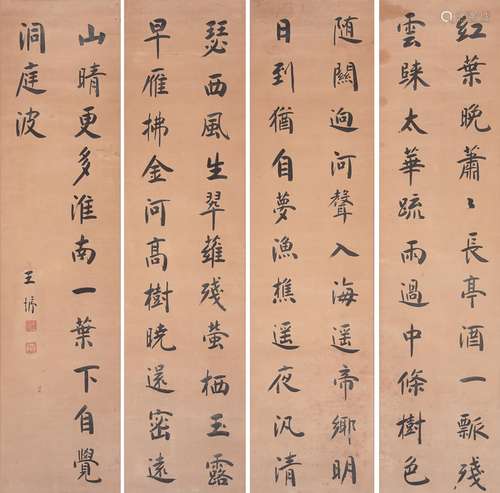 红葉晚蕭〻長亭酒一瓢殘
雲歸太華疏雨過中條樹色
随關迥河聲入海遥帝鄉明
日到猶自夢漁樵遥夜汎清
瑟西風生翠蘿殘螢栖玉露
早雁拂金河高樹曉還密遠
山晴更多淮南一葉下自覺
洞庭波
王